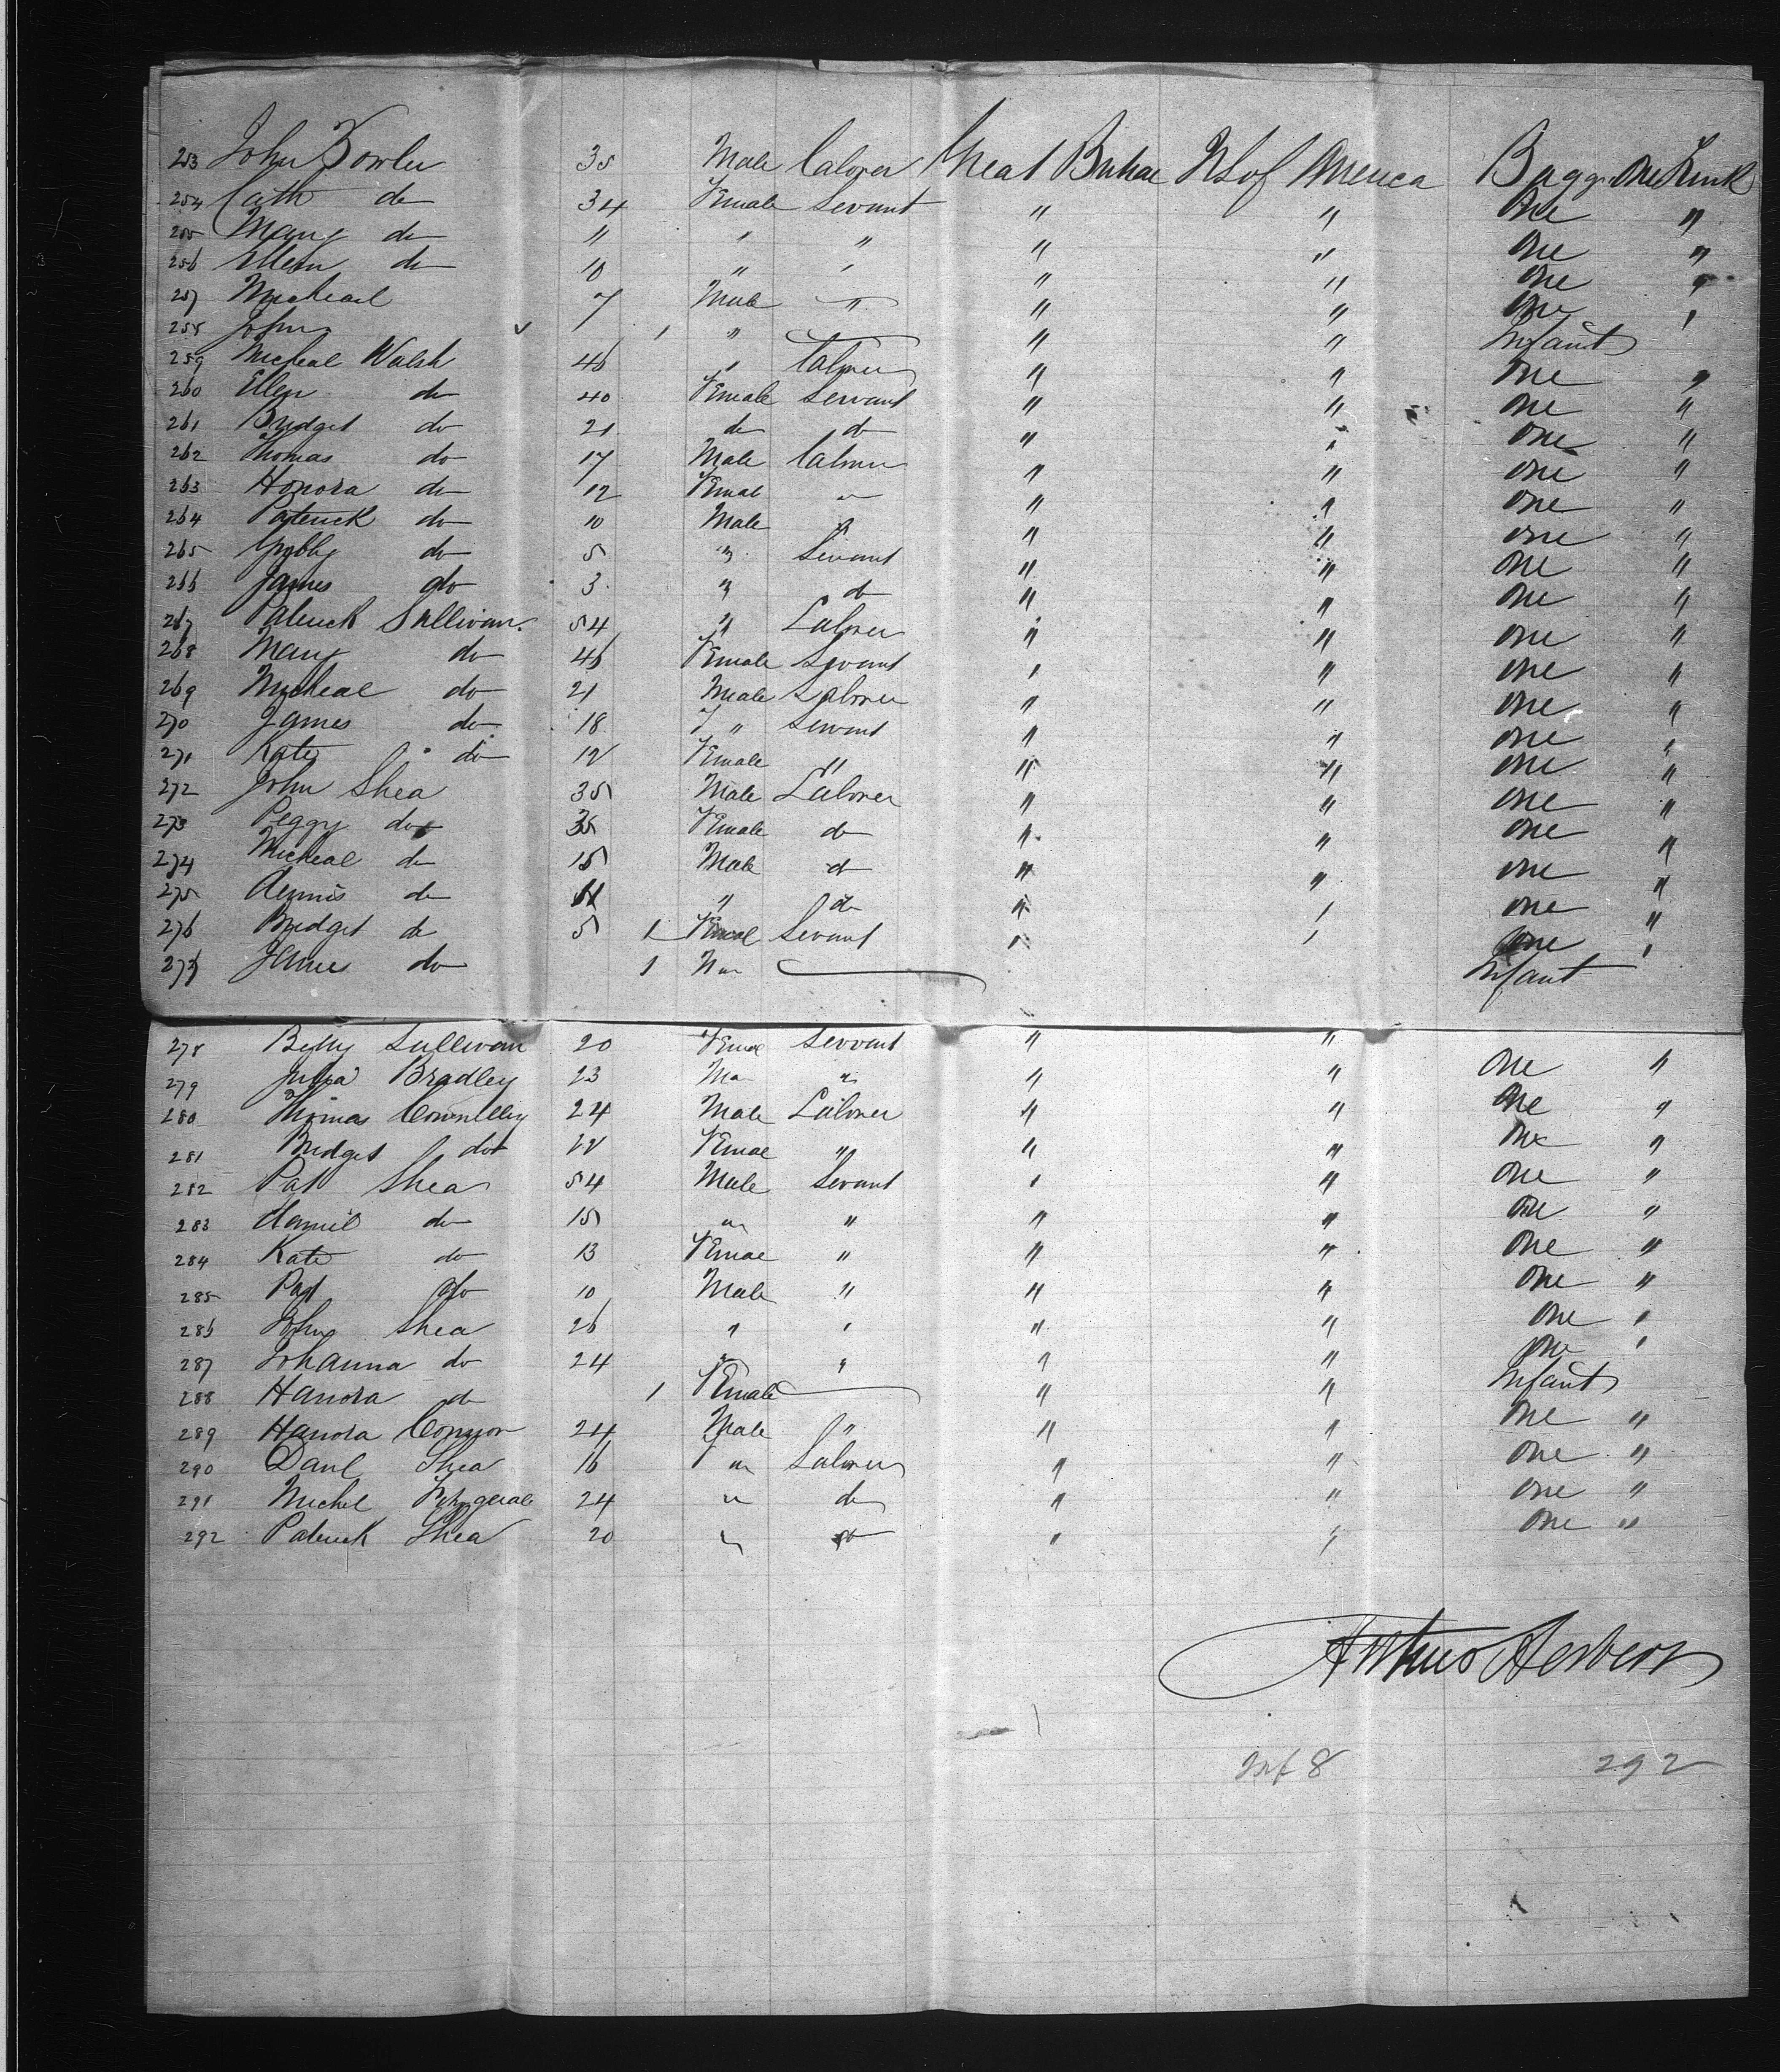 253 John Fowler 35 Male Laborer Great Britain U S of America Bagg. One Trunk
254 Cath do 34 Female Servant " " One "
255 Mary do 11 " " " " One "
256 Ellen do 10 " " " " One "
257 Micheal 7 Male " " " One "
258 John 1 " " " Infant
259 Micheal Walsh 46 " Laborer " " One "
260 Ellen do 40 Female Servant " " One "
261 Bridget do 21 do do " " One "
262 Thomas do 17 Male Laborer " " One "
263 Honora do 12 Femal " " " One "
264 Paterick do 10 Male " " " One "
265 do 5 " Servant " " One "
266 James do 3 " do " " One "
267 Paterick Sullivan 54 " Laborer " " One "
268 Mary do 46 Female Servant " " One "
269 Micheal do 21 Male Laborer " " One "
270 James do 18 " Servant " " One "
271 Kate do 12 Female " " " One "
272 John Shea 35 Male Laborer " " One "
273 Peggy do 35 Female do " " One "
274 Micheal do 15 Male do " " One "
275 Dennis do 11 " do " " One "
276 Bridget do 5 1 Femal Servant " " One "
277 James do 1 " Infant
278 Betty Sullivan 20 Femal Servant " " One "
279 Julia Bradley 23 " " " " One "
280 Thomas Connelley 24 Male Laborer " " One "
281 Bridget do 22 Femae " " " One "
282 Pat Shea 54 Male Servant " " One "
283 Daniel do 15 " " " " One "
284 Kate do 13 Femae " " " One "
285 Pat do 10 Male " " " One "
286 John Shea 26 " " " " One "
287 Johanna do 24 " " " " One "
288 Hanora do 1 Female " " Infant
289 Hanora Connor 24 Male " " " One "
290 Danl Shea 16 " Laborer " " One "
291 Michel Fitzgerald 24 " do " " One "
292 Paterick Shea 20 " do " " One "
Inf 8 292